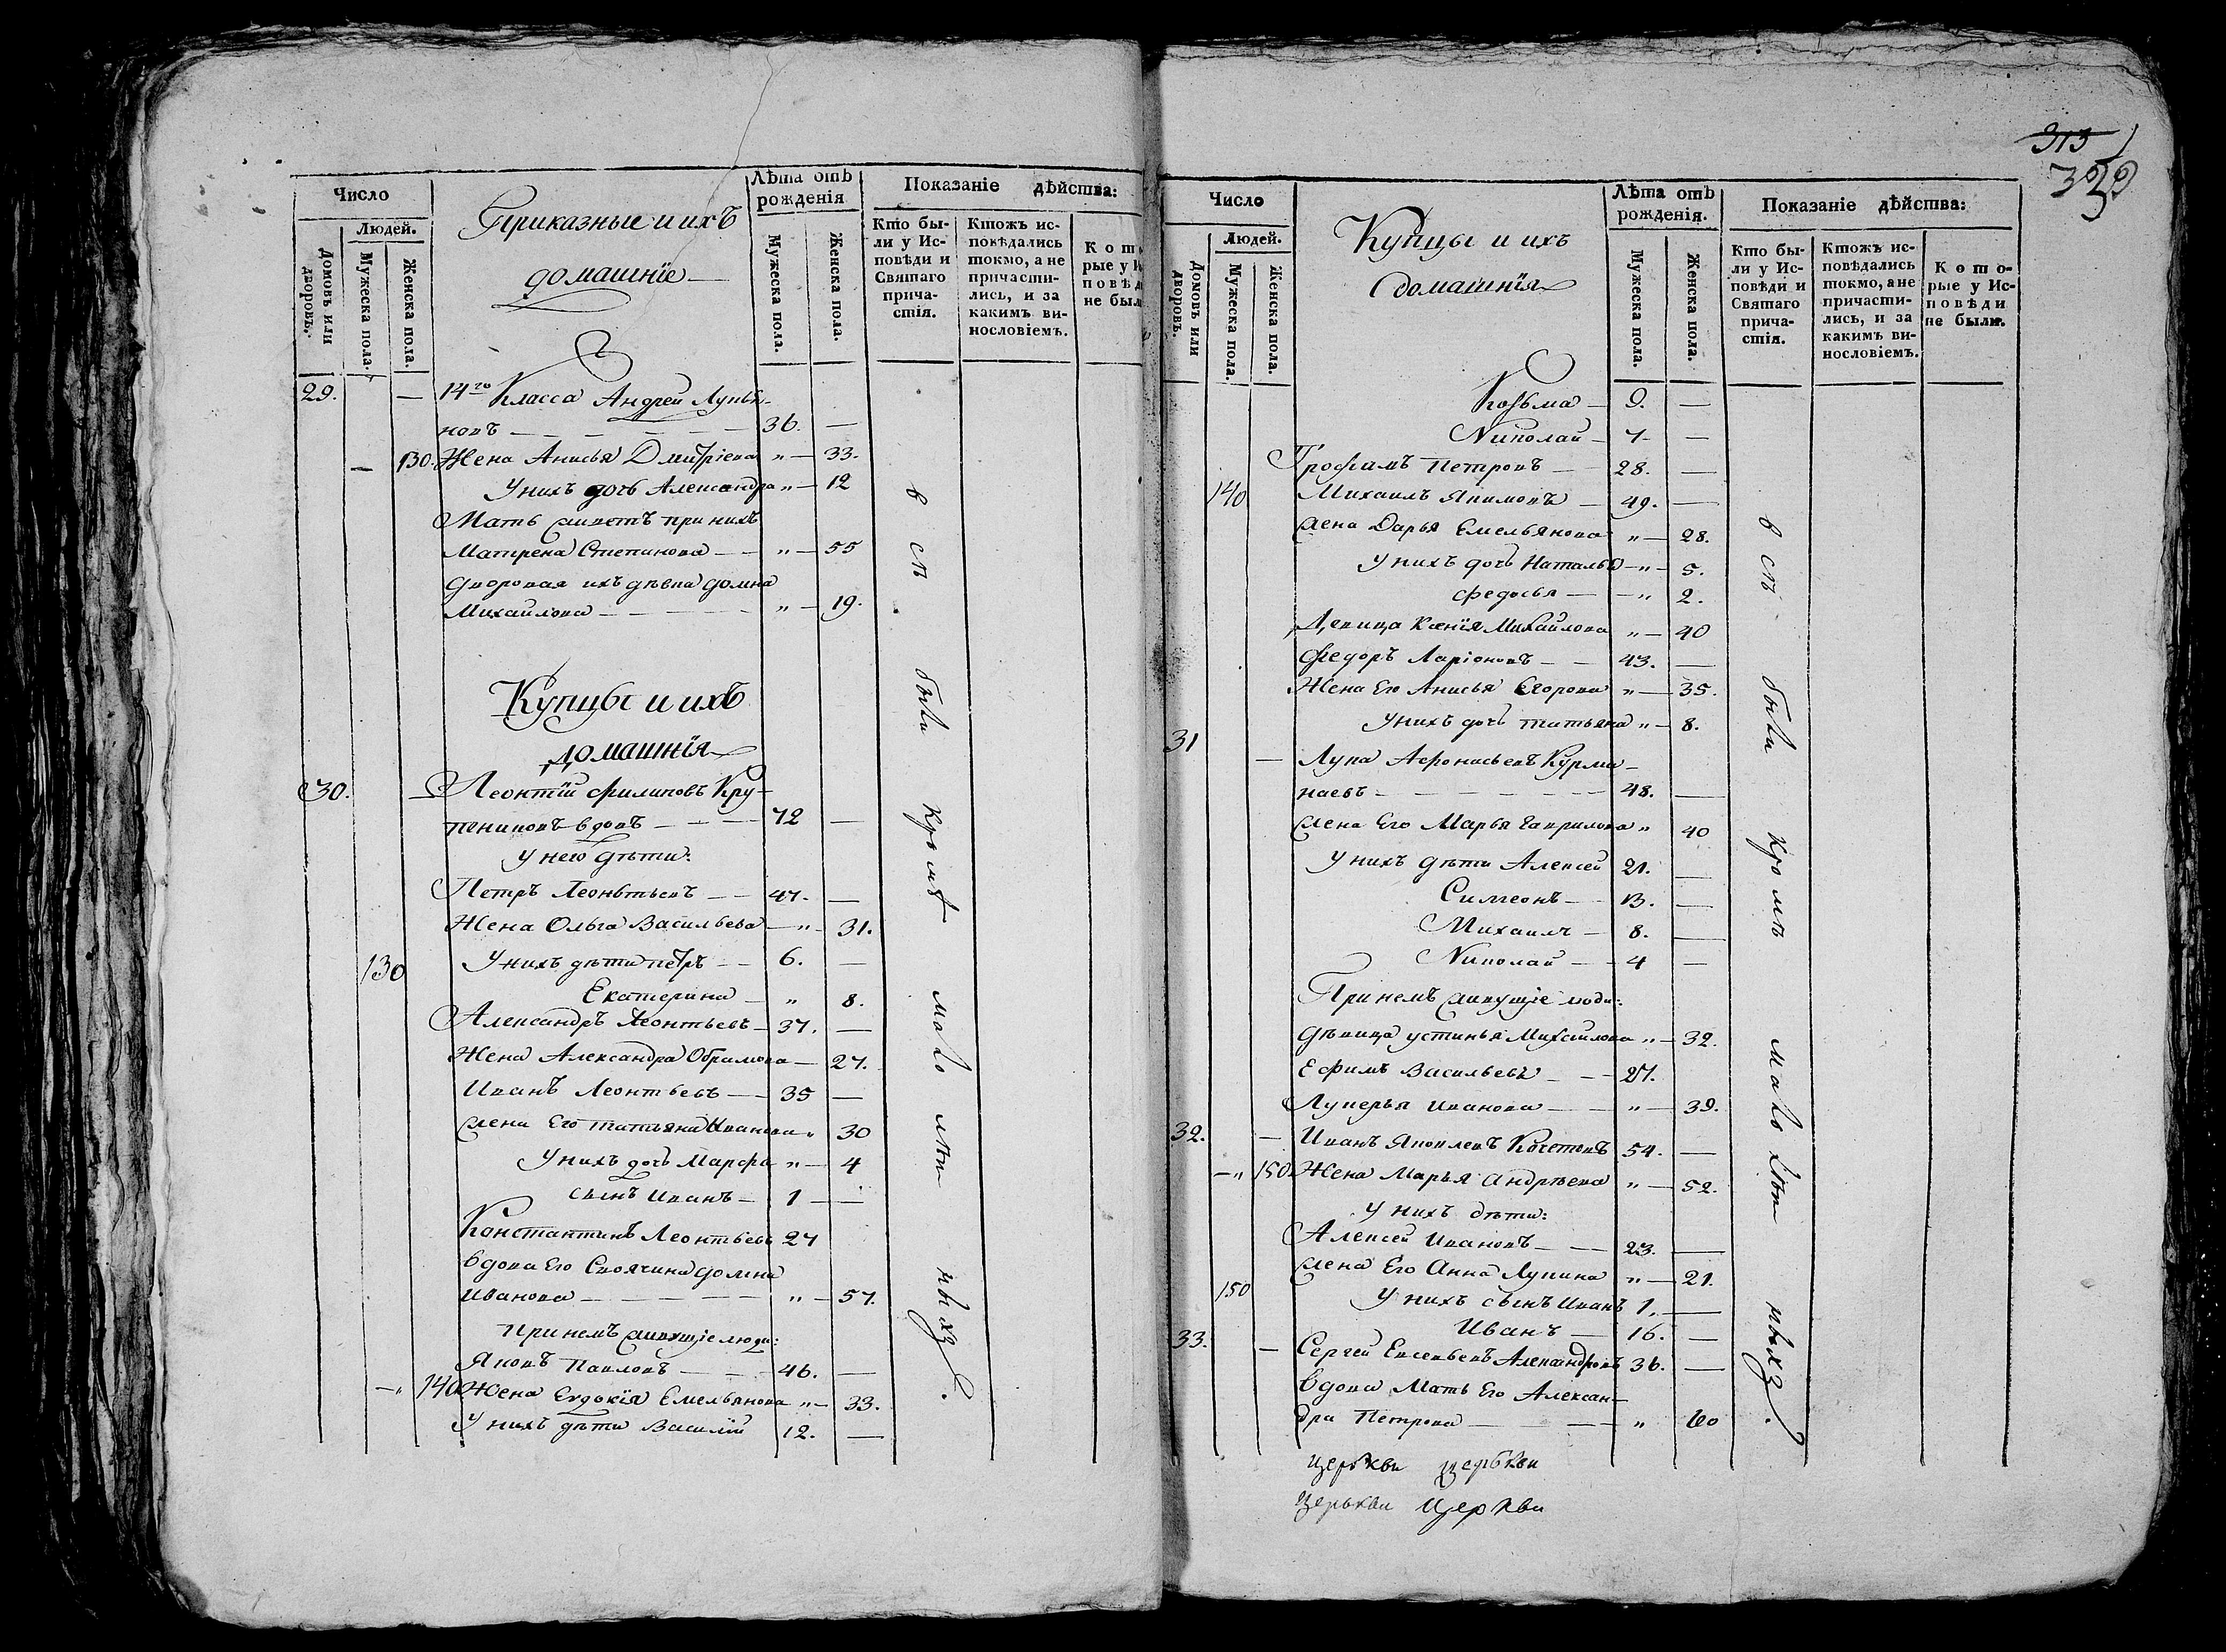 Число
Людей.
Домовъ или дворовъ.
Мужеска пола.
Женска пола.
Приказные и ихъ
домашнїе
Лѣта отъ рожденія
Мужеска пола.
Женска пола.
Показаніе дѣйства:
Кто бы-
ли у Ис-
повѣди и
Святаго
прича-
стія.
Ктожъ ис-
повѣдались
токмо, а не
причасти-
лись, и за
какимъ ви-
нословіемъ.
29. — 14го Класса Андрей Лупан-
новъ — 36. —
— 130. Жена Анисья Дмитріева " — 33.
У нихъ дочь Александра " — 12
Мать живетъ при нихъ
Матрена Степанова — " — 55
Дворовая ихъ дѣвка Домна
Михайлова — " — 19.
Купцы и ихъ
Домашнїя
30. — Леонтїй Филиповъ Кру-
пениковъ вдовъ — 72 —
У него дѣти:
Петръ Леонтьевъ — 47. —
Жена Ольга Васильева — " — 31.
130 У нихъ дѣти Петръ — 6. —
Екатерина — " 8.
Александръ Леонтьевъ — 37. —
Жена Александра Обрамова — 27.
Иванъ Леонтьевъ — 35 —
Жена Его Татьяна Иванова " 30
У нихъ дочь Марфа " — 4
сынъ Иванъ — 1 —
Константинъ Леонтьевъ 27
вдова Его Своячина Домна
Иванова — " — 57.
При немъ живущіе люди:
Яковъ Павловъ — 46. —
— " 140 Жена Евдокїя Емельянова " — 33.
У нихъ дѣти Василїй 12. —
всѣ были кромѣ малолѣтныхъ.
313
329
Число
Людей.
Домовъ или дворовъ.
Мужеска пола.
Женска пола.
Купцы и ихъ
домашнїя
Лѣта отъ рожденія.
Мужеска пола.
Женска пола.
Показаніе дѣйства:
Кто бы-
ли у Ис-
повѣди и
Святаго
прича-
стія.
Ктожъ ис-
повѣдались
токмо, а не
причасти-
лись, и за
какимъ ви-
нословіемъ.
Кото-
рые у Ис-
повѣди
не были.
Козьма — 9. —
Николай — 7 —
Трофимъ Петровъ — 28. —
140 Михаилъ Якимовъ — 49. —
Жена Дарья Емельянова " — 28.
У нихъ дочь Наталья — " — 5.
Федосья — " 2.
Девица Ксенїя Михайлова " — 40
Федоръ Ларіоновъ — 43. —
Жена Его Анисья Егорова " — 35.
У нихъ дочь Татьяна " — 8.
31 — Лупа Афонасьевъ Курма-
наевъ — 48. —
Жена Его Марья Гаврилова " 40
У нихъ дѣти Алексей 21. —
Симеонъ — 13. —
Михаилъ — 8. —
Николай — 4 —
При немъ живущіе люди:
Дѣвица Устинья Михайлова " — 32.
Ефимъ Васильевъ — 27.
Лукерья Иванова — " — 39.
32. — Иванъ Яковлевъ Кочетовъ 54. —
— " 150 Жена Марья Андрѣева " — 52.
У нихъ дѣти:
Алексей Ивановъ — 23. —
Жена Его Анна Лупина " — 21.
150 У нихъ сынъ Иванъ 1. —
Иванъ — 16. —
33. — Сергей Евсевьевъ Александровъ 36. —
вдова Мать Его Алексан-
дра Петрова — " 60
всѣ были кромѣ малолѣтныхъ.
церькви церькви
церькви Церкви